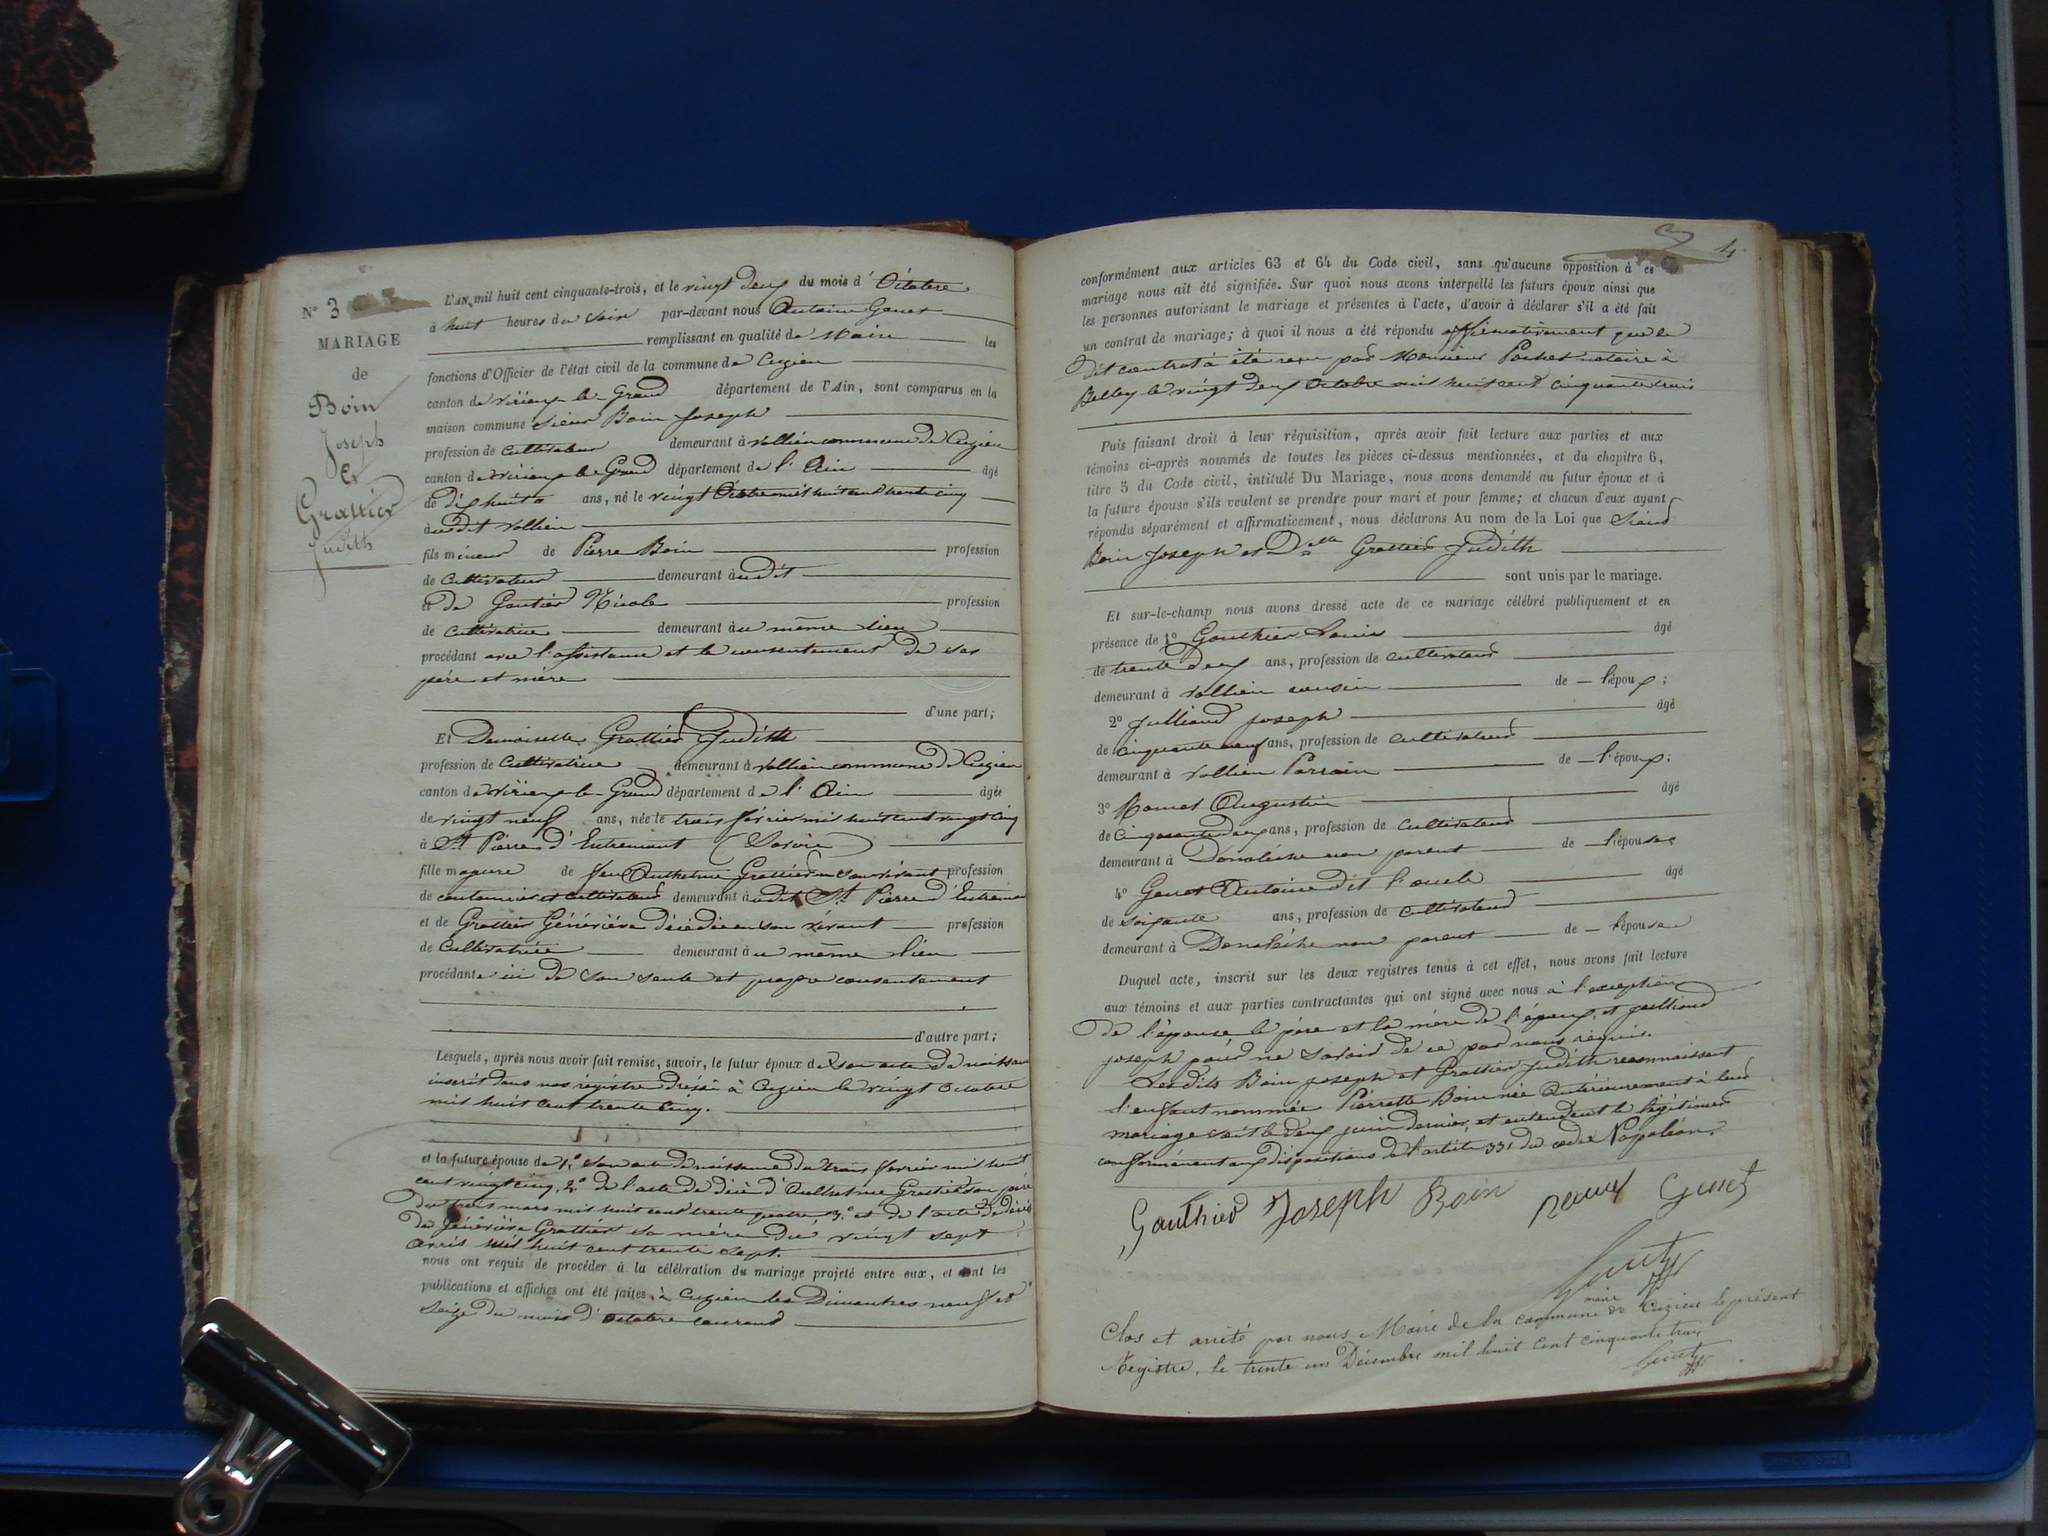 N° 3
MARIAGE
de
Boin
Joseph
Et
Grattier
Judith
L'AN mil huit cent cinquante-trois, et le vingt deux du mois d'Octobre
à huit heures du soir par-devant nous Antoine Genet
remplissant en qualité de Maire les
fonctions d'Officier de l'état civil de la commune de Cuzieu
canton de Virieux le Grand département de l'Ain, sont comparus en la
maison commune sieur Boin Joseph
profession de cultivateur demeurant à Vollien commune de Cuzieu
canton de Virieux le Grand département de l'Ain âgé
de dix huit ans, né le vingt Octobre mil huit cent trente cinq
à udit Vollien
fils mineur de Pierre Boin profession
de cultivateur demeurant à udit
et de Gautier Nicole profession
de cultivatrice demeurant à u même lieu
procédant avec l'assistance et le consentement de ses
père et mère
d'une part;
Et Demoiselle Grattier Judith
profession de cultivatrice demeurant à Vollien commune de Cuzieu
canton de Virieux le Grand département de l'Ain âgée
de vingt neuf ans, née le trois février mil huit cent vingt cinq
à St Pierre d'Entremont (Savoie)
fille majeure de feu Anthelme Grattier en son vivant profession
de coutumier et cultivateur demeurant à udit St Pierre d'Entremont
et de Grattier Généviève décédée en son vivant profession
de Cultivatrice demeurant à u même lieu
procédante ici de son seule et propre consentement
d'autre part;
Lesquels, après nous avoir fait remise, savoir, le futur époux de son acte de naissance
inscrit dans nos régistre dressé à Cuzieu le vingt octobre
mil huit cent trente cinq.
et la future épouse de 1° son acte de naissance du trois février mil huit
cent vingt cinq, 2° de l'acte de décè d'Anthelme Grattier son père
du trois mars mil huit cent trente quatre 3° et de l'acte de décès
de Généviève Grattier sa mère du vingt sept
avril mil huit cent trente sept.
nous ont requis de procéder à la célébration du mariage projeté entre eux, et dont les
publications et affiches ont été faites à Cuzieu les Dimanches neuf et
Seize du mois d'octobre courant
4
conformément aux articles 63 et 64 du Code civil, sans qu'aucune opposition à ce
mariage nous ait été signifiée. Sur quoi nous avons interpellé les futurs époux ainsi que
les personnes autorisant le mariage et présentes à l'acte, d'avoir à déclarer s'il a été fait
un contrat de mariage; à quoi il nous a été répondu affirmativement que le
dit contrat à été reçu par Monsieur Pochet notaire à
Belley le vingt deux Octobre mil huit cent cinquante trois
Puis faisant droit à leur réquisition, après avoir fait lecture aux parties et aux
témoins ci-après nommés de toutes les pièces ci-dessus mentionnées, et du chapitre 6,
titre 5 du Code civil, intitulé Du Mariage, nous avons demandé au futur époux et à
la future épouse s'ils veulent se prendre pour mari et pour femme; et chacun d'eux ayant
répondu séparément et affirmativement, nous déclarons Au nom de la Loi que Sieur
Boin Joseph et Delle Grattier Judith
sont unis par le mariage.
Et sur-le-champ nous avons dressé acte de ce mariage célébré publiquement et en
présence de 1° Gauthier Louis âgé
de trente deux ans, profession de cultivateur
demeurant à Vollien cousin de l'époux;
2° Julliand Joseph âgé
de cinquante neuf ans, profession de cultivateur
demeurant à Vollien Parrain de l'époux;
3° Momet Augustin âgé
de Cinquante deux ans, profession de cultivateur
demeurant à Donalèche non parent de l'épouse;
4° Genet Antoine dit l'oncle âgé
de soixante ans, profession de cultivateur
demeurant à Donalèche non parent de l'épouse
Duquel acte, inscrit sur les deux registres tenus à cet effet, nous avons fait lecture
aux témoins et aux parties contractantes qui ont signé avec nous à l'exception
de l'épouse le père et la mère de l'époux, et Julliand
joseph pour ne savoir de ce par nous réquis.
Les dits Boin joseph et Grattier Judith reconnaissent
l'enfant nommée Pierrette Boin née antérieurement à leur
mariage soit le deux juin dernier, et entendent le légitimer
conformément aux dispositions de l'article 331 du code Napoléon.
Gauthier Joseph Boin Genet
maire
Clos et arrêté par nous Maire de la commune de Cuzieu le présent
Registre, le trente un Décembre mil huit cent cinquante trois